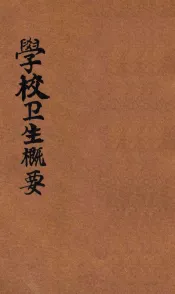 學校卫生概要